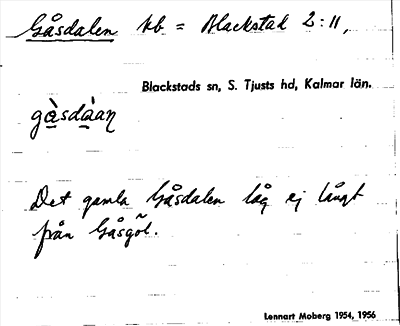 Gåsdalen hb = Blackstad 2:11,
Blackstads sn, S. Tjusts hd, Kalmar län.
gàsdàan
Det gamla Gåsdalen låg ej långt
från Gåsgöl.
Lennart Moberg 1954, 1956